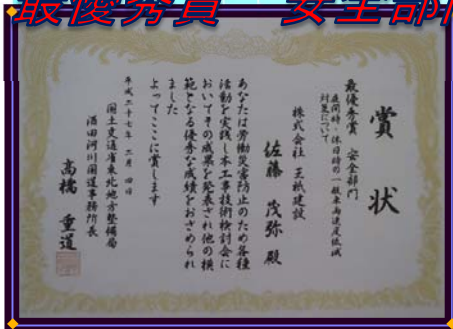 最優秀賞 安全部門
賞状
最優秀賞 安全部門
夜間時・休日時の一般車両速度低減
対策について
株式会社 王祇建設
佐藤 茂弥 殿
あなたは労働災害防止のため各種
活動を実践し本工事技術検討会に
おいてその成果を発表され他の模
範となる優秀な成績をおさめられ
ました
よってここに賞します
平成二十七年 二月 四日
国土交通省東北地方整備局
酒田河川国道事務所長
高橋 重道